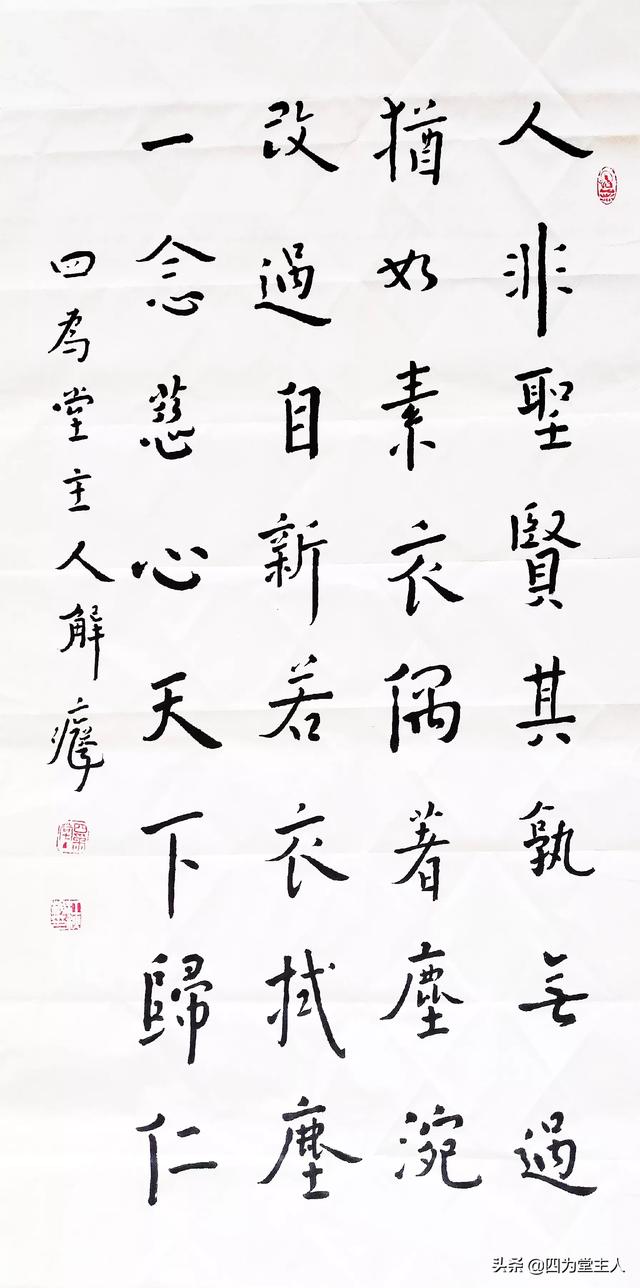 人非聖賢其孰無過
猶如素衣偶著塵涴
改過自新若衣拭塵
一念慈心天下歸仁
四為堂主人解
头条 @四为堂主人